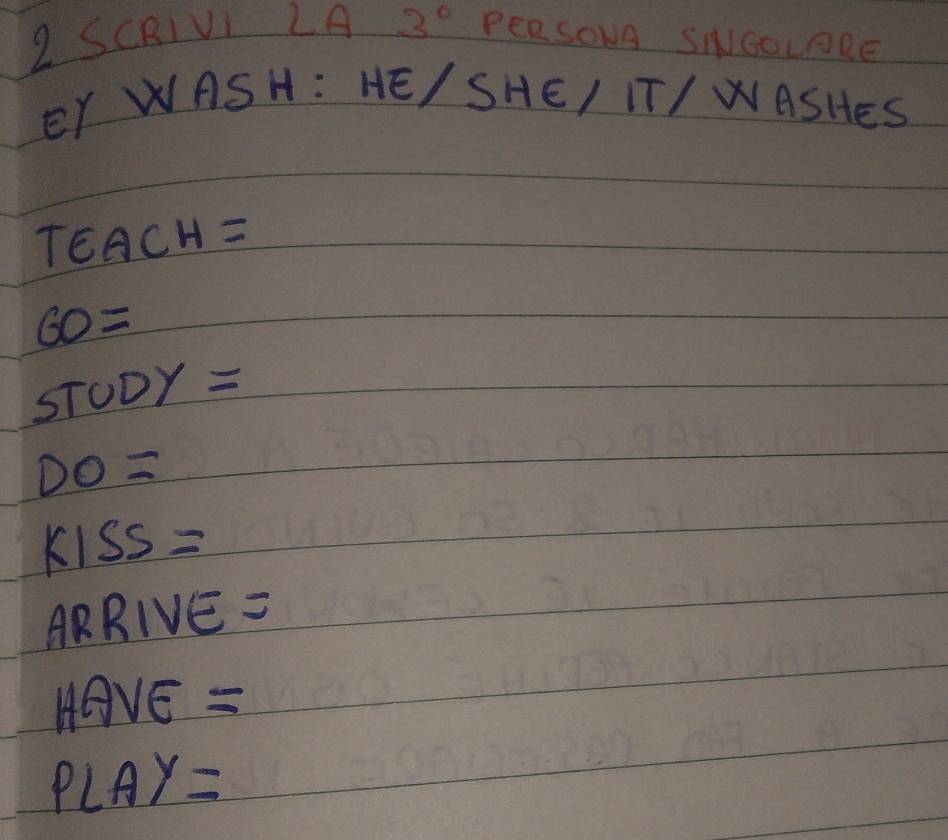 2 SCRIVI LA 3° PERSONA SINGOLARE
EX WASH: HE/SHE/IT/WASHES
TEACH=
GO=
STUDY=
DO=
KISS=
ARRIVE=
HAVE=
PLAY=